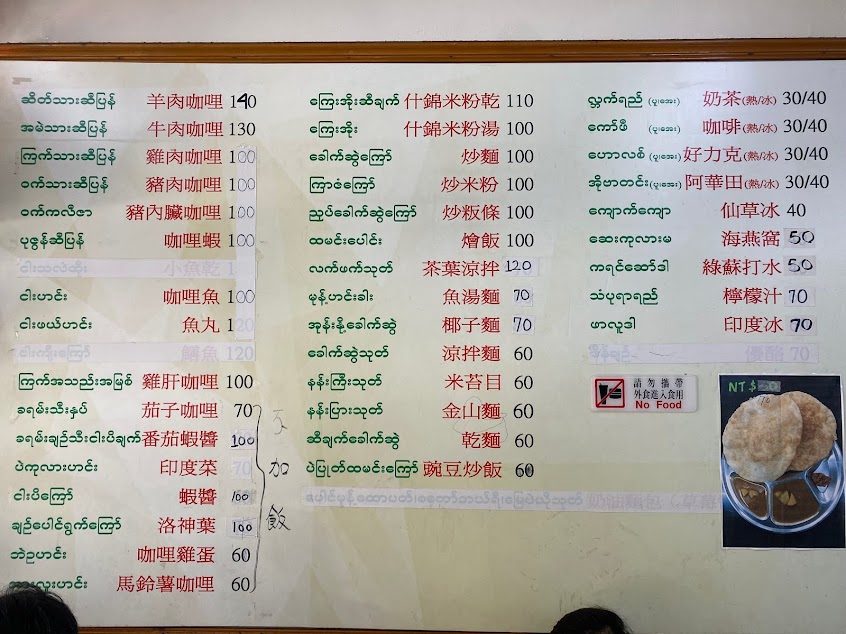 ဆိတ်သားဆီပြန် 羊肉咖哩 140
အမဲသားဆီပြန် 牛肉咖哩 130
ကြက်သားဆီပြန် 雞肉咖哩 100
ဝက်သားဆီပြန် 豬肉咖哩 100
ဝက်ကလီဇာ 豬內臟咖哩 100
ပုဇွန်ဆီပြန် 咖哩蝦 100
ငါးသလဲထိုး 小魚乾 1
ငါးဟင်း 咖哩魚 100
ငါးဖယ်ဟင်း 魚丸 120
ငါးကြီးကြော် 鯛魚 120
ကြက်အသည်းအမြစ် 雞肝咖哩 100
ခရမ်းသီးနှပ် 茄子咖哩 70
ခရမ်းချဉ်သီးငါးပိချက် 番茄蝦醬 100
ပဲကုလားဟင်း 印度菜 70
ငါးပိကြော် 蝦醬 100
ချဉ်ပေါင်ရွက်ကြော် 洛神葉 100
ဘဲဥဟင်း 咖哩雞蛋 60
အာလူးဟင်း 馬鈴薯咖哩 60
不加飯
ကြေးအိုးဆီချက် 什錦米粉乾 110
ကြေးအိုး 什錦米粉湯 100
ခေါက်ဆွဲကြော် 炒麵 100
ကြာဇံကြော် 炒米粉 100
ညှပ်ခေါက်ဆွဲကြော် 炒粄條 100
ထမင်းပေါင်း 燴飯 100
လက်ဖက်သုတ် 茶葉涼拌 120
မုန့်ဟင်းခါး 魚湯麵 70
အုန်းနို့ခေါက်ဆွဲ 椰子麵 70
ခေါက်ဆွဲသုတ် 涼拌麵 60
နန်းကြီးသုတ် 米苔目 60
နန်းပြားသုတ် 金山麵 60
ဆီချက်ခေါက်ဆွဲ 乾麵 60
ပဲပြုတ်ထမင်းကြော် 豌豆炒飯 60
奶油麵包 (草莓
လ္ဘက်ရည် (ပူ၊အေး) 奶茶(熱/冰) 30/40
ကော်ဖီ (ပူ၊အေး) 咖啡(熱/冰) 30/40
ဟောလစ် (ပူ၊အေး) 好力克(熱/冰) 30/40
အိုဗာတင်း (ပူ၊အေး) 阿華田(熱/冰) 30/40
ကျောက်ကျော 仙草冰 40
ဆေးကုလားမ 海燕窩 50
ကရင်ဆော်ဒါ 綠蘇打水 50
သံပုရာရည် 檸檬汁 70
ဖာလူဒါ 印度冰 70
ဒိန်ချဉ် 優酪 70
請勿攜帶
外食進入食用
No Food
NT$